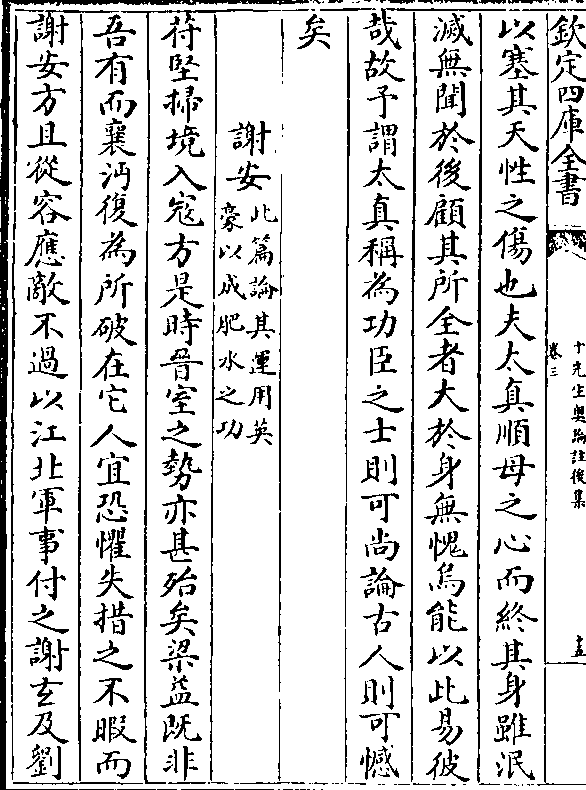 欽定四庫全書
十先生奧論註後集
卷三
五
以塞其天性之傷也夫太真順母之心而終其身雖泯
滅無聞於後顧其所全者大於身無愧焉能以此易彼
哉故予謂太真稱為功臣之士則可尚論古人則可憾
矣
謝安
此篇論其運用英
豪以成肥水之功
苻堅掃境入寇方是時晉室之勢亦甚殆矣梁益既非
吾有而襄沔復為所破在它人宜恐懼失措之不暇而
謝安方且從容應敵不過以江北軍事付之謝玄及劉